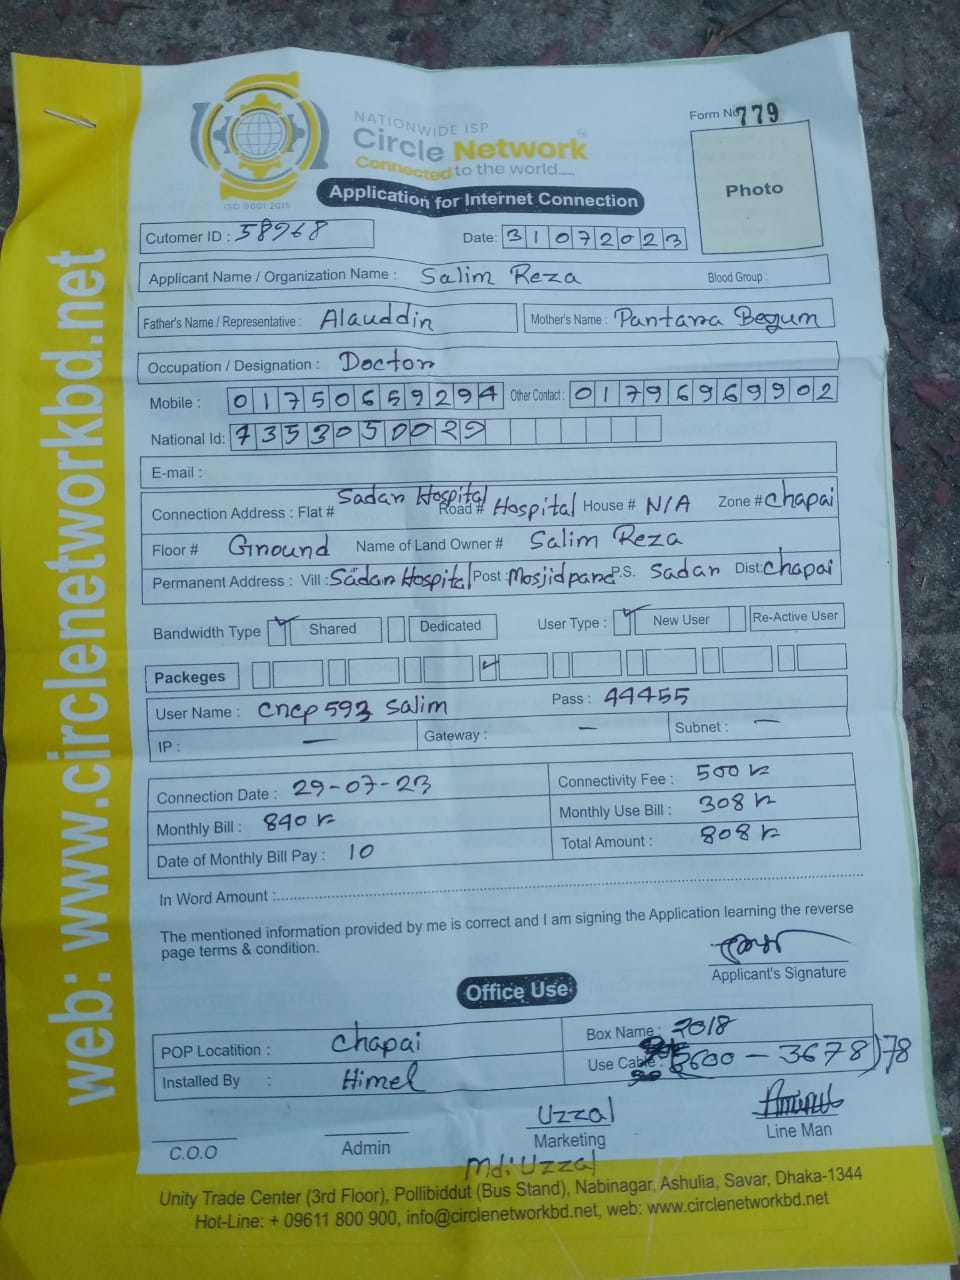 NATIONWIDE ISP
Circle Network
Connected to the world.....
ISO 9001:2015
Form No 779
Photo
Application for Internet Connection
Cutomer ID : 58968 Date: 31072023
Applicant Name / Organization Name : Salim Reza Blood Group :
Father's Name / Representative : Alauddin Mother's Name : Pantara Begum
Occupation / Designation : Doctor
Mobile : 01750659294 Other Contact : 01796969902
National Id: 7353050029
E-mail :
Connection Address : Flat # Sadar Hospital Road # Hospital House # N/A Zone # Chapai
Floor # Ground Name of Land Owner # Salim Reza
Permanent Address : Vill : Sadar Hospital Post : Mosjidpara P.S. Sadar Dist: Chapai
Bandwidth Type Shared Dedicated User Type : New User Re-Active User
Packeges
User Name : cncp593 salim Pass : 44455
IP : — Gateway : — Subnet : —
Connection Date : 29-07-23 Connectivity Fee : 500
Monthly Bill : 840 Monthly Use Bill : 308
Date of Monthly Bill Pay : 10 Total Amount : 808
In Word Amount :
The mentioned information provided by me is correct and I am signing the Application learning the reverse
page terms & condition.
Applicant's Signature
Office Use
POP Locatition : Chapai Box Name : 2018
Installed By : Himel Use Cable : 3600 - 3678)78
Uzzal Aminul
C.O.O Admin Marketing Line Man
Md: Uzzal
Unity Trade Center (3rd Floor), Pollibiddut (Bus Stand), Nabinagar, Ashulia, Savar, Dhaka-1344
Hot-Line: + 09611 800 900, info@circlenetworkbd.net, web: www.circlenetworkbd.net
web: www.circlenetworkbd.net